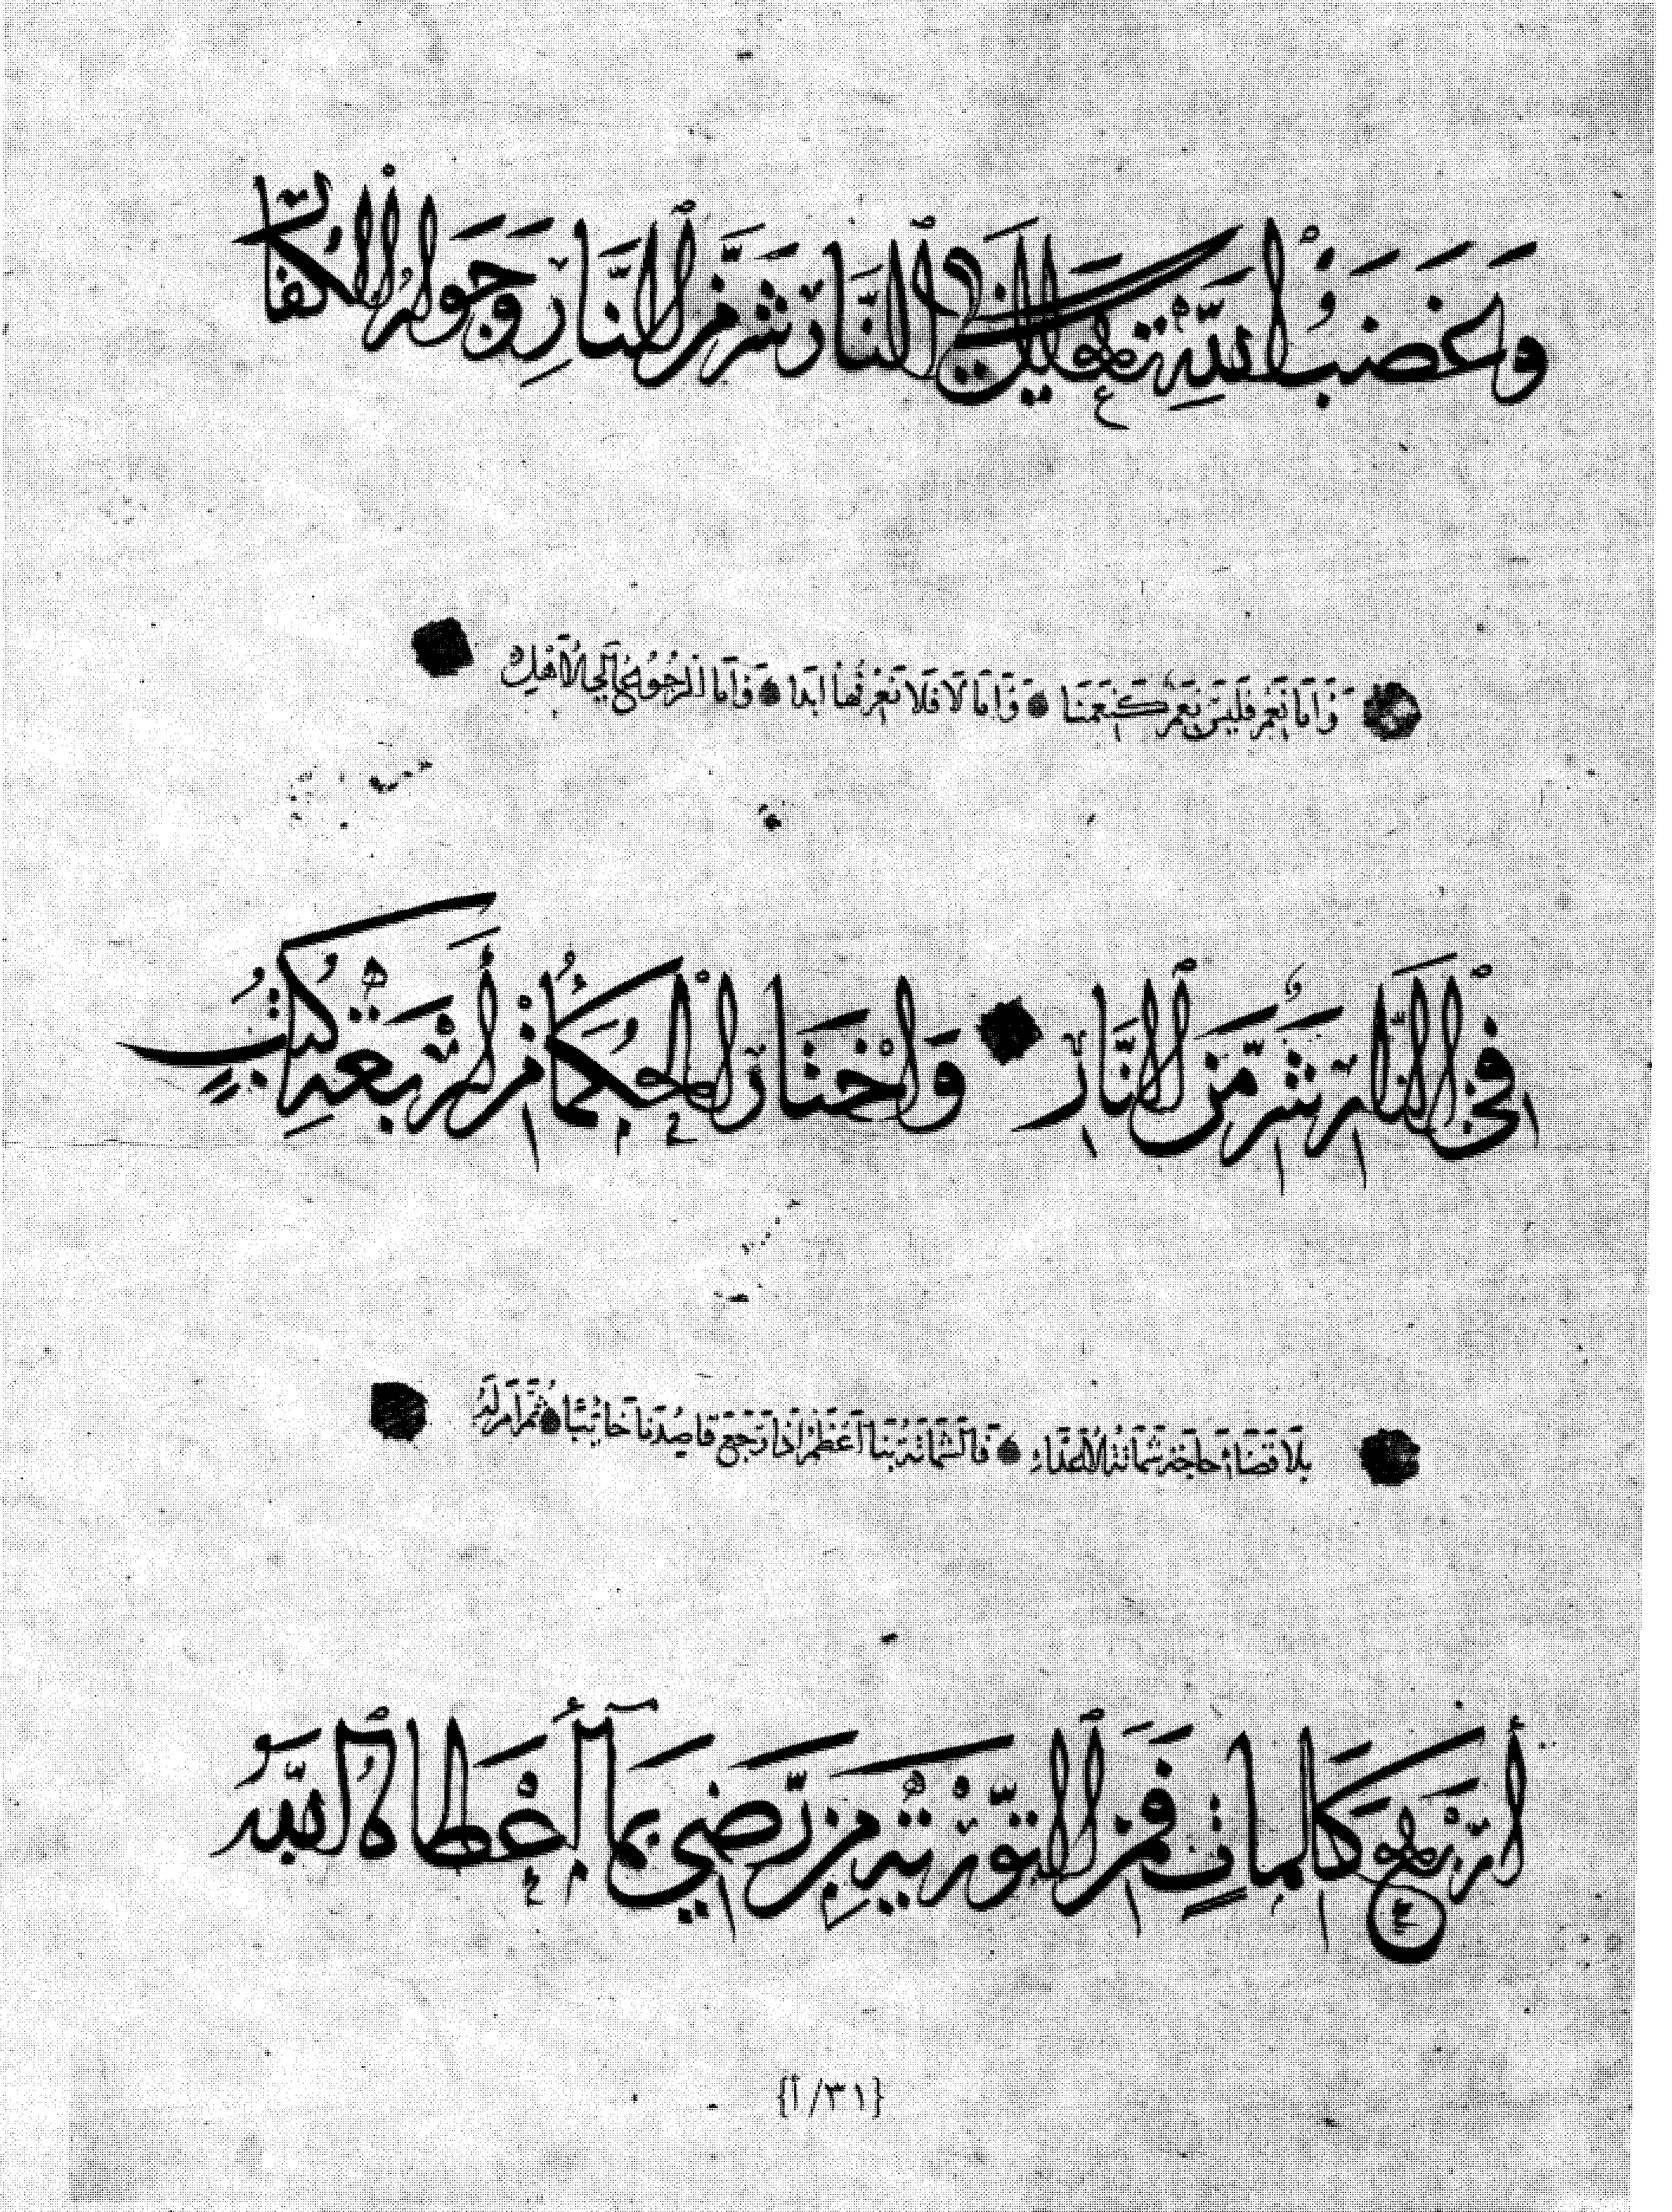 وَغَضَبُ اللَّهِ تعالى في النَّار شَرٌّ من النَّارِ وَجَوارُ الْكُفَّار
وَأَمَّا نَعَم فَلَيسَ نَعَم كَنَعَمنَا وَأَمَا لَا فَلَا نَعْرِفُهَا ابَدا وَأَمَا الرُجُوعُ إِلَي الأَهْلِ
في النَّار شَرٌّ مِنَ النَّار وَاخْتَارَ الْحُكَمَاءُ من أَرْبَعَةِ كُتُبٍ
بِلَا قَضَاءِ حَاجَة شَمَاتَةُ الأَعْدَاءِ فَالشَمَاتَةُ بِنَا أَعْظَمُ اذَا رَجَعَ قَاصِدُنَا خَائِبًا ثُمَّ أَمَرَ لَهُ
أَرْبَعَ كَلِمَاتٍ فَمِنَ التَّوْرَيةِ مِن رَضِيَ بِمَا أَعْطَاهُ اللَّهُ
{٣١/أ}